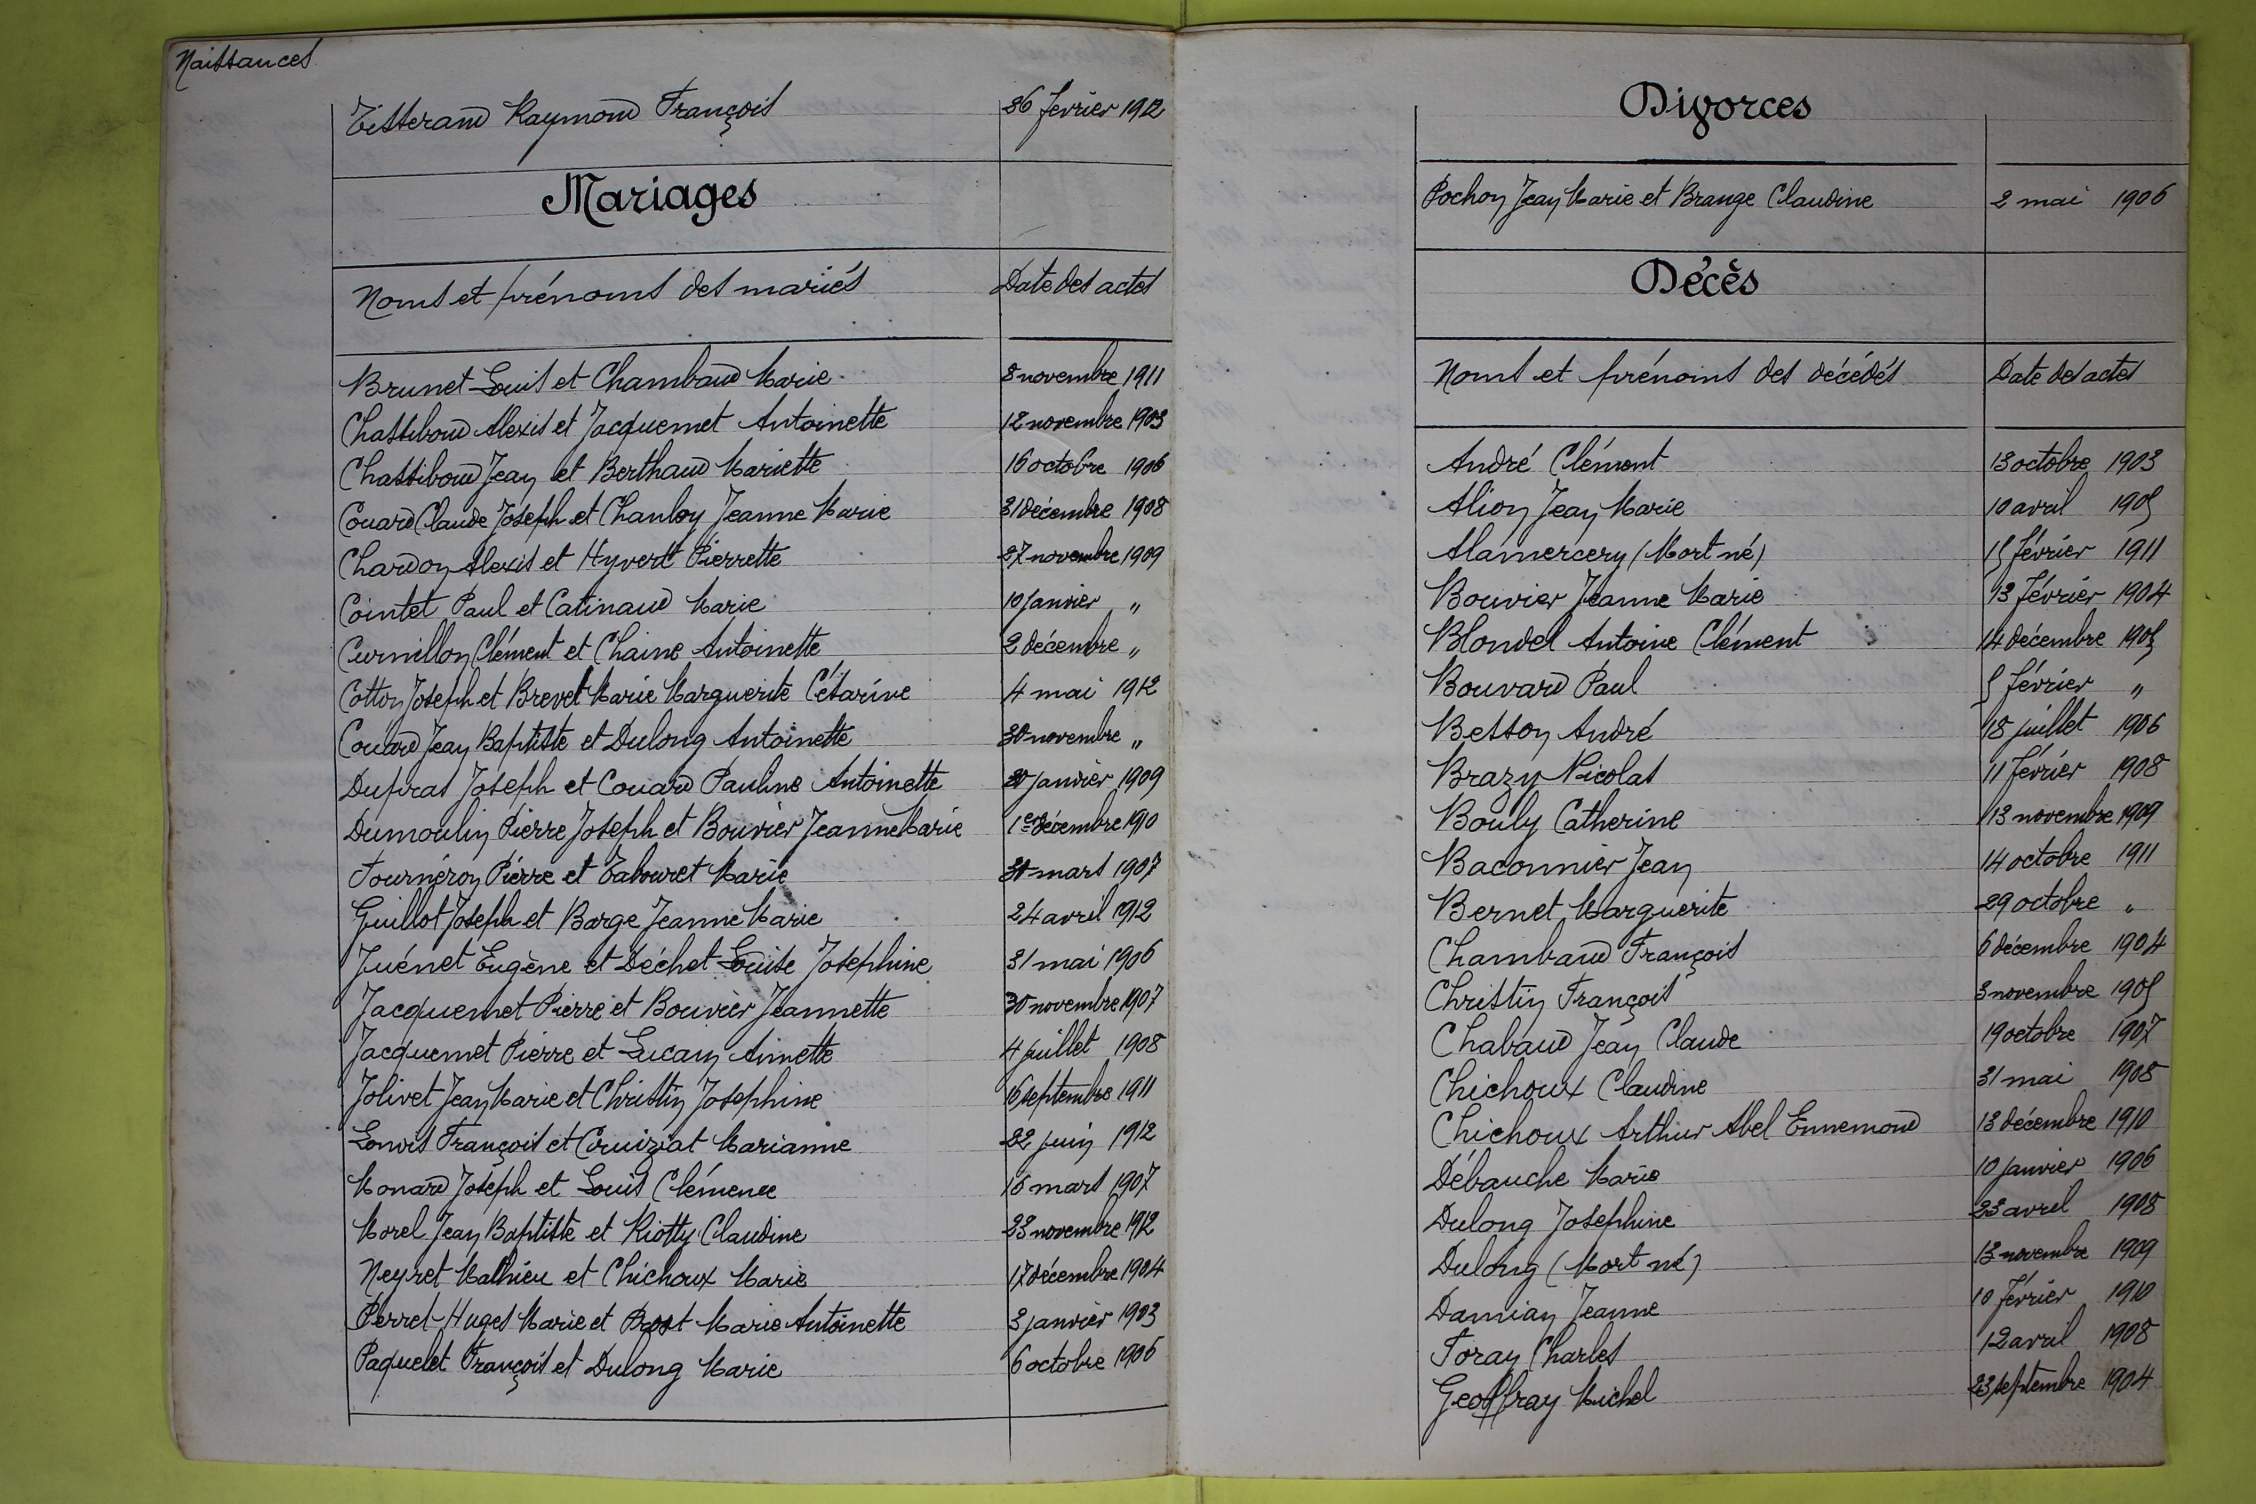 Naissances
Tisserand Raymond François 26 février 1912
Mariages
Noms et prénoms des mariés Date des actes
Brunet Louis et Chambaud Marie 8 novembre 1911
Chassiboud Alexis et Jacquemet Antoinette 12 novembre 1903
Chassiboud Jean et Berthaud Mariette 16 octobre 1906
Couard Claude Joseph et Chanloy Jeanne Marie 31 décembre 1908
Chardon Alexis et Hyvert Pierrette 27 novembre 1909
Cointet Paul et Catinaud Marie 10 janvier "
Curnillon Clément et Chaine Antoinette 2 décembre "
Cotton Joseph et Brevet Marie Marguerite Césarine 4 mai 1912
Couard Jean Baptiste et Dulong Antoinette 30 novembre "
Dupras Joseph et Couard Pauline Antoinette 30 janvier 1909
Dumoulin Pierre Joseph et Bouvier Jeanne Marie 1er décembre 1910
Fournéron Pierre et Tabouret Marie 30 mars 1907
Guillot Joseph et Barge Jeanne Marie 24 avril 1912
Juénet Eugène et Déchet Louise Josephine 31 mai 1906
Jacquemet Pierre et Bouvier Jeannette 30 novembre 1907
Jacquemet Pierre et Lucain Annette 4 juillet 1908
Jolivet Jean Marie et Christin Josephine 16 septembre 1911
Louis François et Cruiziat Marianne 22 juin 1912
Monard Joseph et Louis Clémence 16 mars 1907
Morel Jean Baptiste et Riotty Claudine 23 novembre 1912
Neyret Mathieu et Chichoux Marie 17 décembre 1904
Perret Hugues Marie et Prost Marie Antoinette 3 janvier 1903
Paquelet François et Dulong Marie 6 octobre 1906
Divorces
Pochon Jean Marie et Brange Claudine 2 mai 1906
Décès
Noms et prénoms des décédés Date des actes
André Clément 13 octobre 1903
Alion Jean Marie 10 avril 1905
Alamercery (Mort né) 15 février 1911
Bouvier Jeanne Marie 13 février 1904
Blondel Antoine Clément 14 décembre 1905
Bouvard Paul 5 février "
Besson André 18 juillet 1906
Brazy Nicolas 11 février 1908
Bouly Catherine 13 novembre 1909
Baconnier Jean 14 octobre 1911
Bernet Marguerite 29 octobre "
Chambaud François 6 décembre 1904
Christin François 3 novembre 1905
Chabaud Jean Claude 19 octobre 1907
Chichoux Claudine 31 mai 1908
Chichoux Arthur Abel Ennemond 13 décembre 1910
Débauche Marie 10 janvier 1906
Dulong Josephine 23 avril 1908
Dulong (Mort né) 13 novembre 1909
Damian Jeanne 10 février 1910
Foray Charles 12 avril 1908
Geoffray Michel 23 septembre 1904